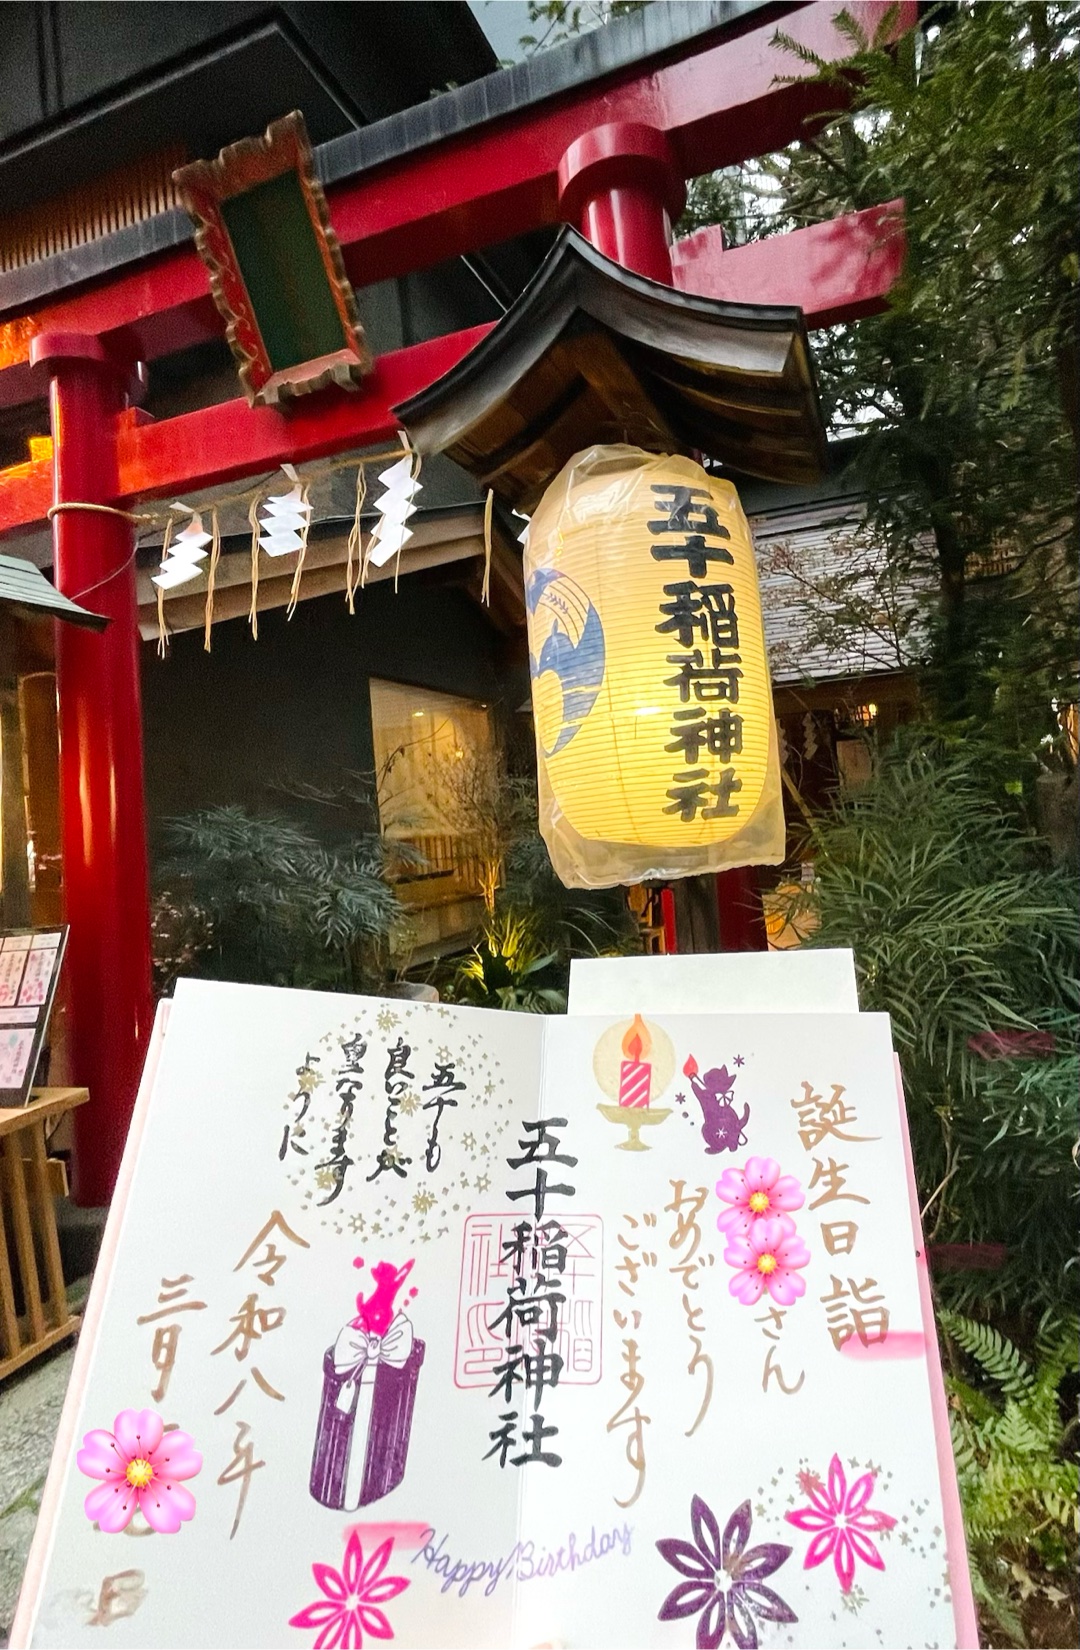 五十稲荷神社
誕生日詣
さん
おめでとう
ございます
五十稲荷神社
五十も
良いことが
重なります
ように
令和八年
三月
日
Happy Birthday